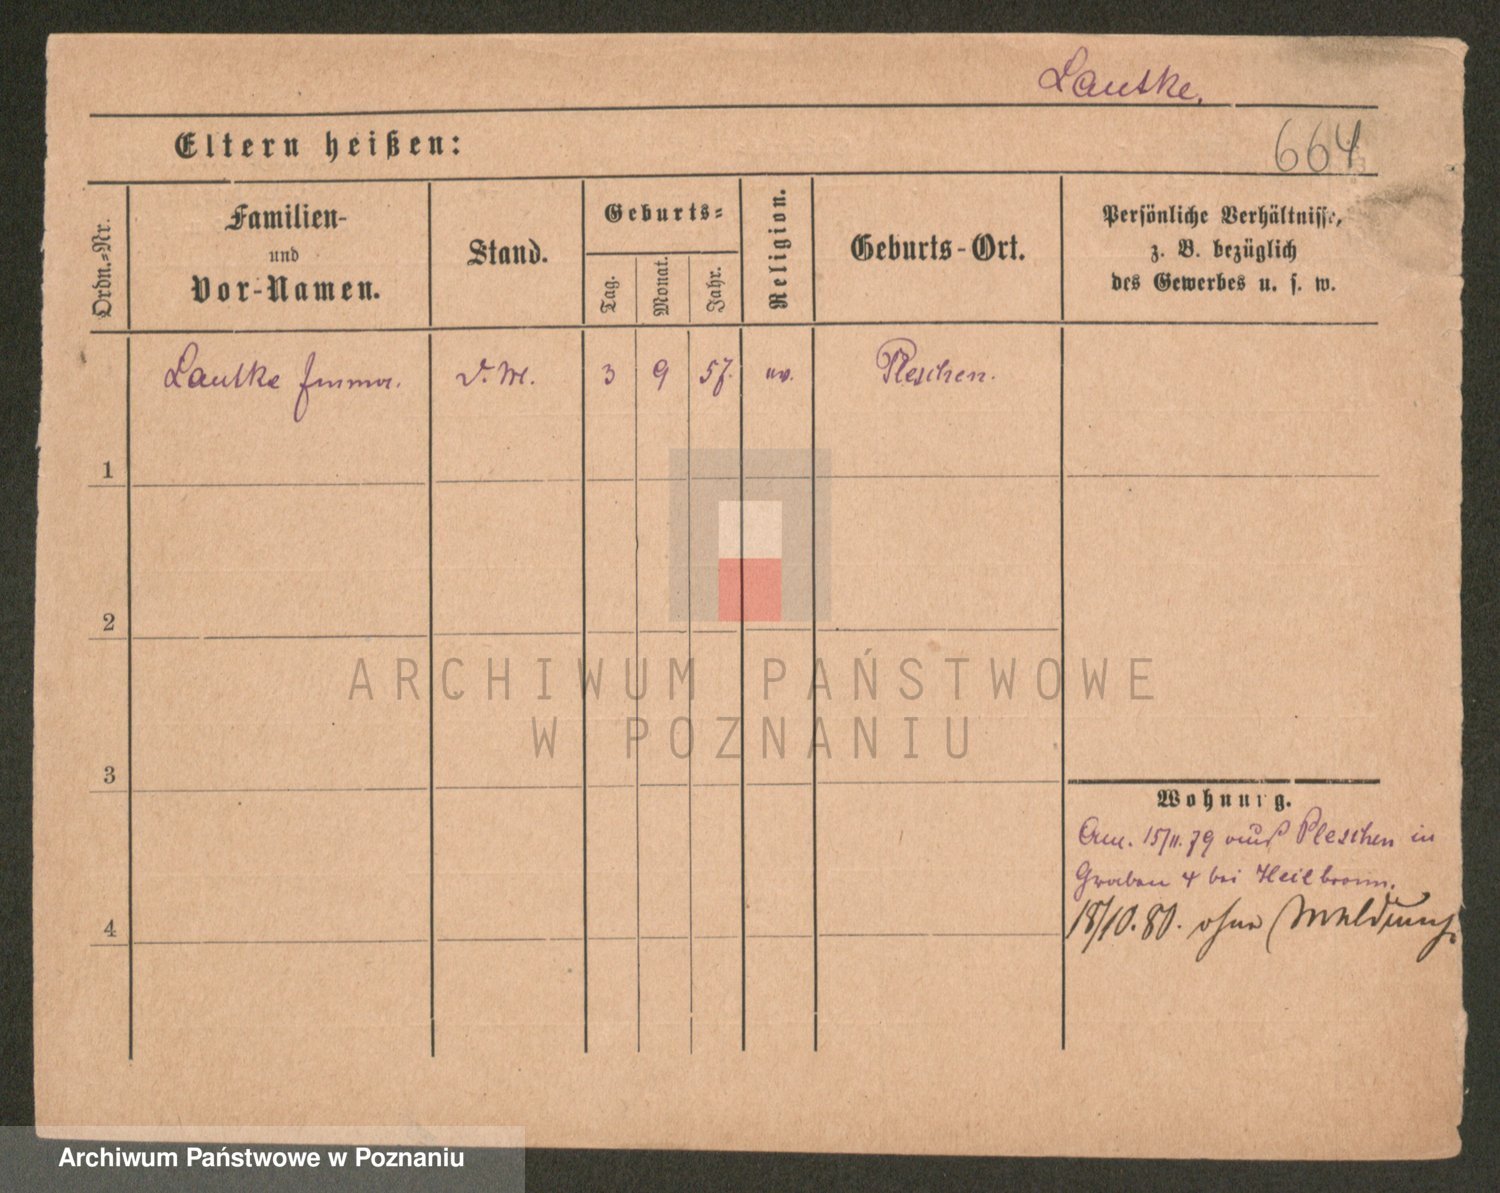 Lautke.
664
Eltern heißen:
Ordn.-Nr.
Familien-
und
Vor-Namen.
Stand.
Geburts-
Tag.
Monat.
Jahr.
Religion.
Geburts-Ort.
Persönliche Verhältnisse,
z. B. bezüglich
des Gewerbes u. s. w.
1 Lautke Emma. D. M. 3 9 57. ev. Pleschen.
2
3
4
Wohnung.
15/11. 79 aus Pleschen in
Graben 4 bei Heilbronn.
18/10. 80. ohne Meldung.
ARCHIWUM PAŃSTWOWE
W POZNANIU
Archiwum Państwowe w Poznaniu